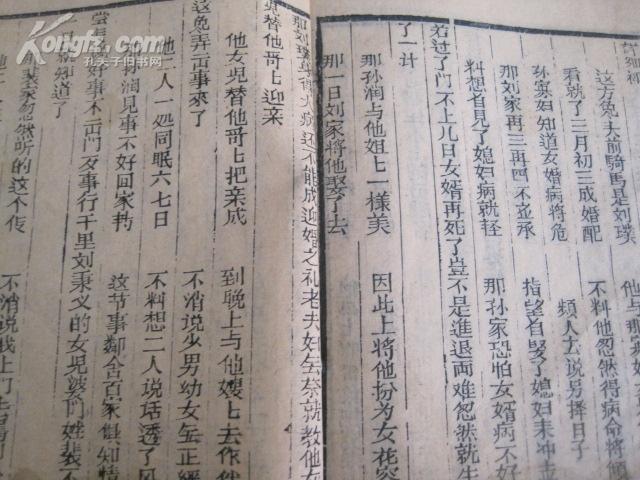 这方免夫前騎馬是刘璞 不料他忽然得病命将傾
看就了三月初三成婚配 煩人去说另擇日子
孙寡妇知道女婚病将危 指望自娶了媳妇来冲
那刘家再三再四不並承 那孙家恐怕女婿病不好
料想自見了媳妇病就轻
若过了门不上几日女婿再死了豈不是進退两难忽然就生
了一计
那孙润与他姐上一樣美 因此上将他扮为女花容
那一日刘家将他娶了去
那刘璞身得大病还不能成迎婚之礼老夫妇無奈就教他女
兒替他哥上迎亲
他女兒替他哥上把亲成 到晚上与他嫂上去作伴
这兔弄出事來了 不消说少男幼女無正經
他二人一処同眠六七日 不料想二人说话透了风
那孙润見事不好回家躬 这节事鄰舍百家俱知情
尝言好事不出門反事行千里刘秉义的女兒裴門姓裴不
就知道了
那裴家忽然听的这个信 不消说我上门